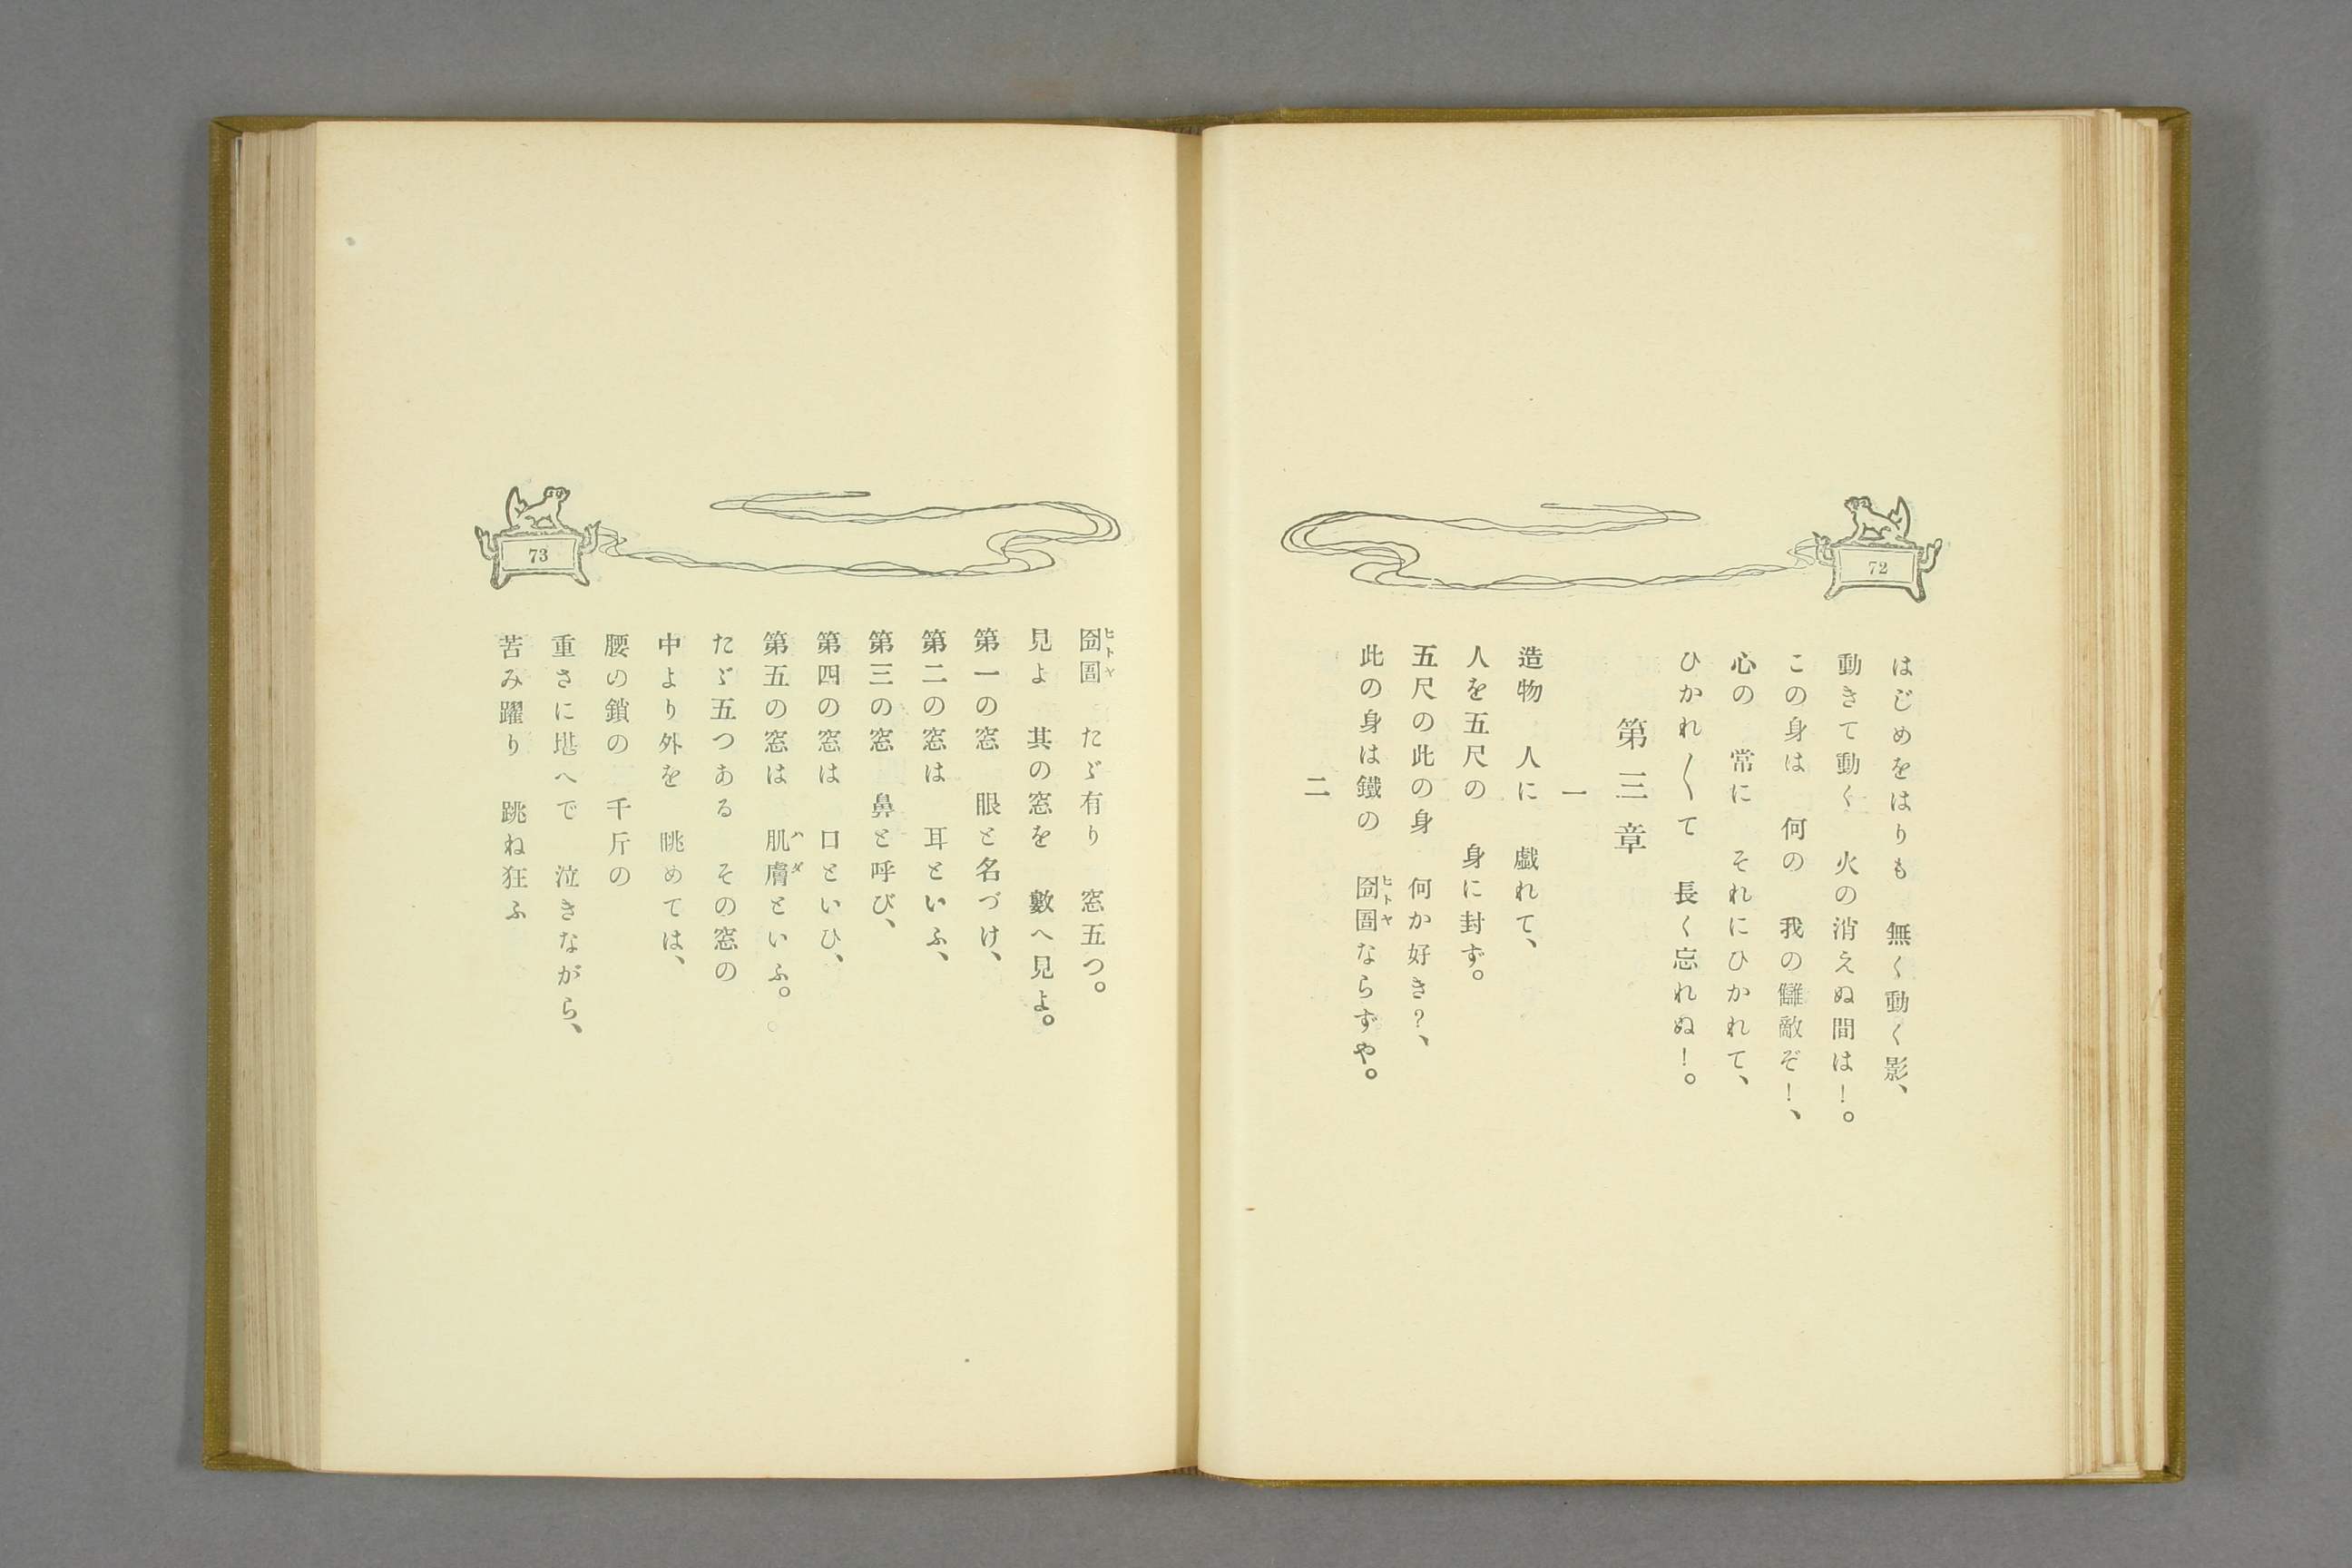 72
はじめをはりも　無く動く影、
動きて動く　火の消えぬ間は！。
この身は　何の　我の讎敵ぞ！、
心の　常に　それにひかれて、
ひかれ〳〵て　長く忘れぬ！。
第三章
一
造物　人に　戯れて、
人を五尺の　身に封ず。
五尺の此の身　何か好き？、
此の身は鐵の　囹圄ヒトヤならずや。
二
73
囹圄ヒトヤ　たゞ有り　窓五つ。
見よ　其の窓を　數へ見よ。
第一の窓　眼と名づけ、
第二の窓は　耳といふ、
第三の窓　鼻と呼び、
第四の窓は　口といひ、
第五の窓は　肌膚ハダといふ。
たゞ五つある　その窓の
中より外を　眺めては、
腰の鎖の　千斤の
重さに堪へで　泣きながら、
苦み躍り　跳ね狂ふ